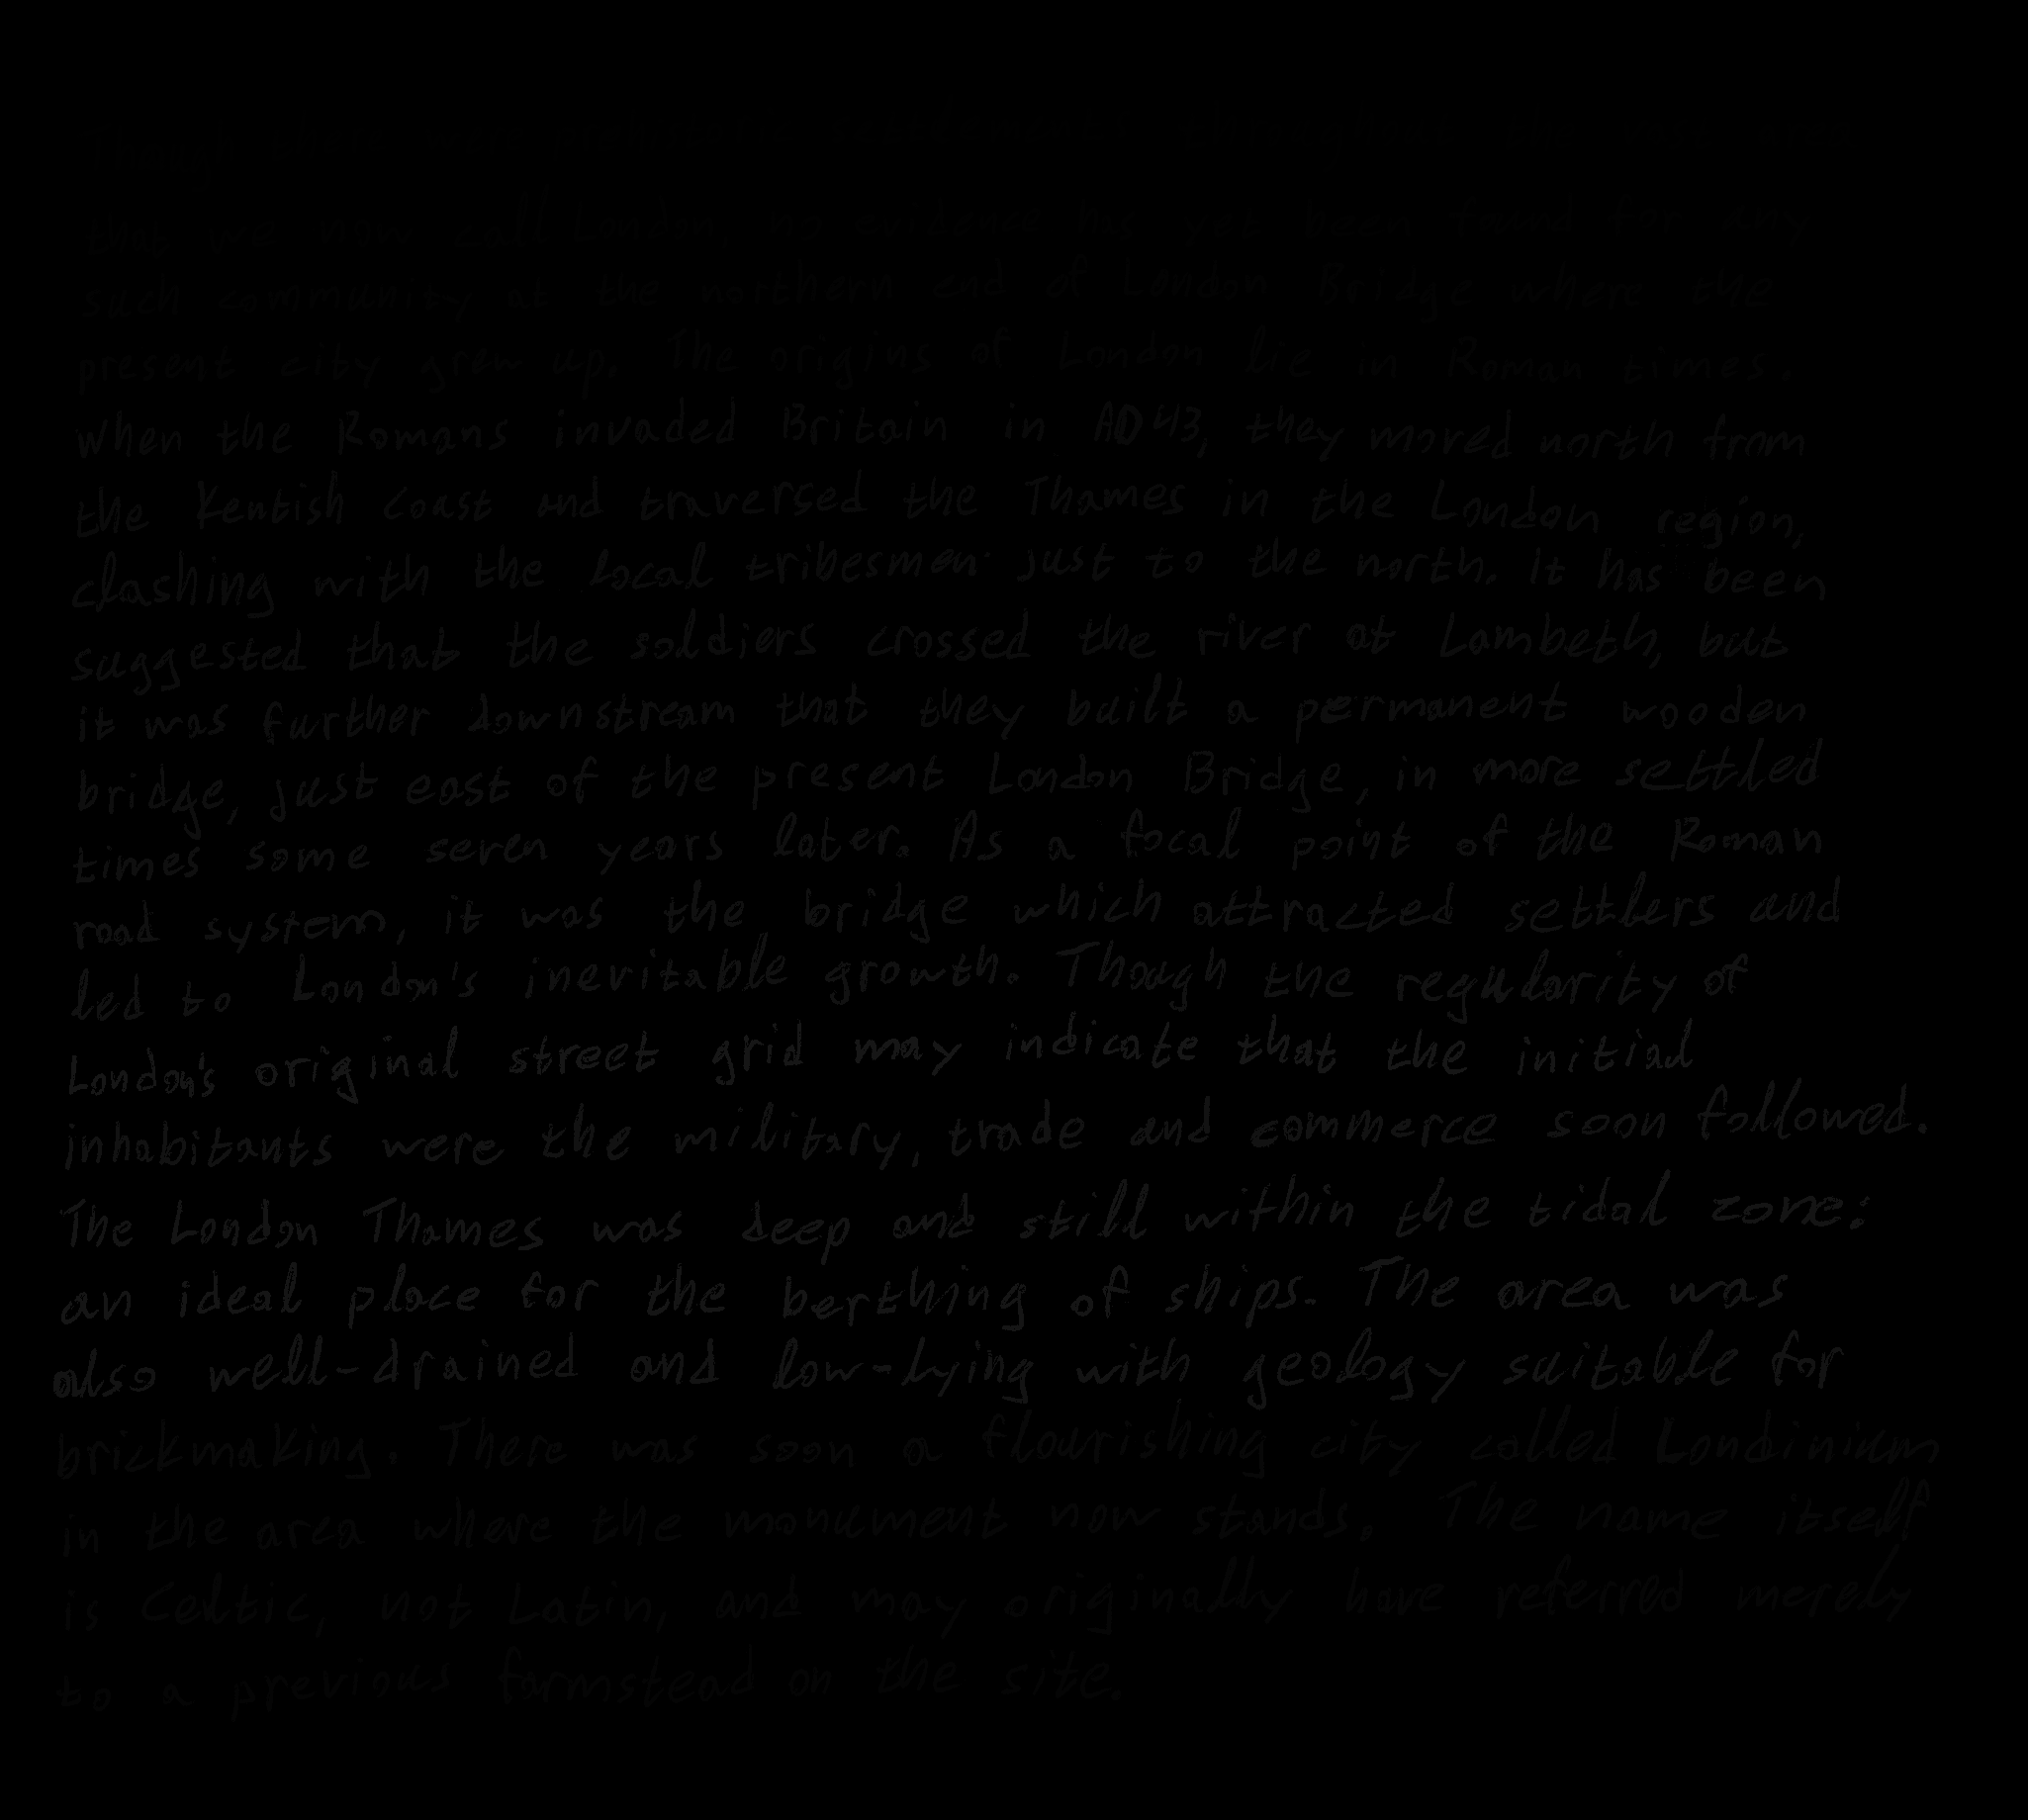 Though there were prehistoric settlements throughout the vast area
that we now call London, no evidence has yet been found for any
such community at the northern end of London Bridge where the
present city grew up. The origins of London lie in Roman times.
When the Romans invaded Britain in AD43, they moved north from
the Kentish Coast and traversed the Thames in the London region,
clashing with the local tribesmen just to the north. It has been
suggested that the soldiers crossed the river at Lambeth, but
it was further downstream that they built a permanent wooden
bridge, just east of the present London Bridge, in more settled
times some seven years later. As a focal point of the Roman
road system, it was the bridge which attracted settlers and
led to London's inevitable growth. Though the regularity of
London's original street grid may indicate that the initial
inhabitants were the military, trade and commerce soon followed.
The London Thames was deep and still within the tidal zone:
an ideal place for the berthing of ships. The area was
also well-drained and low-lying with geology suitable for
brickmaking. There was soon a flourishing city called Londinium
in the area where the monument now stands. The name itself
is Celtic, not Latin, and may originally have referred merely
to a previous farmstead on the site.